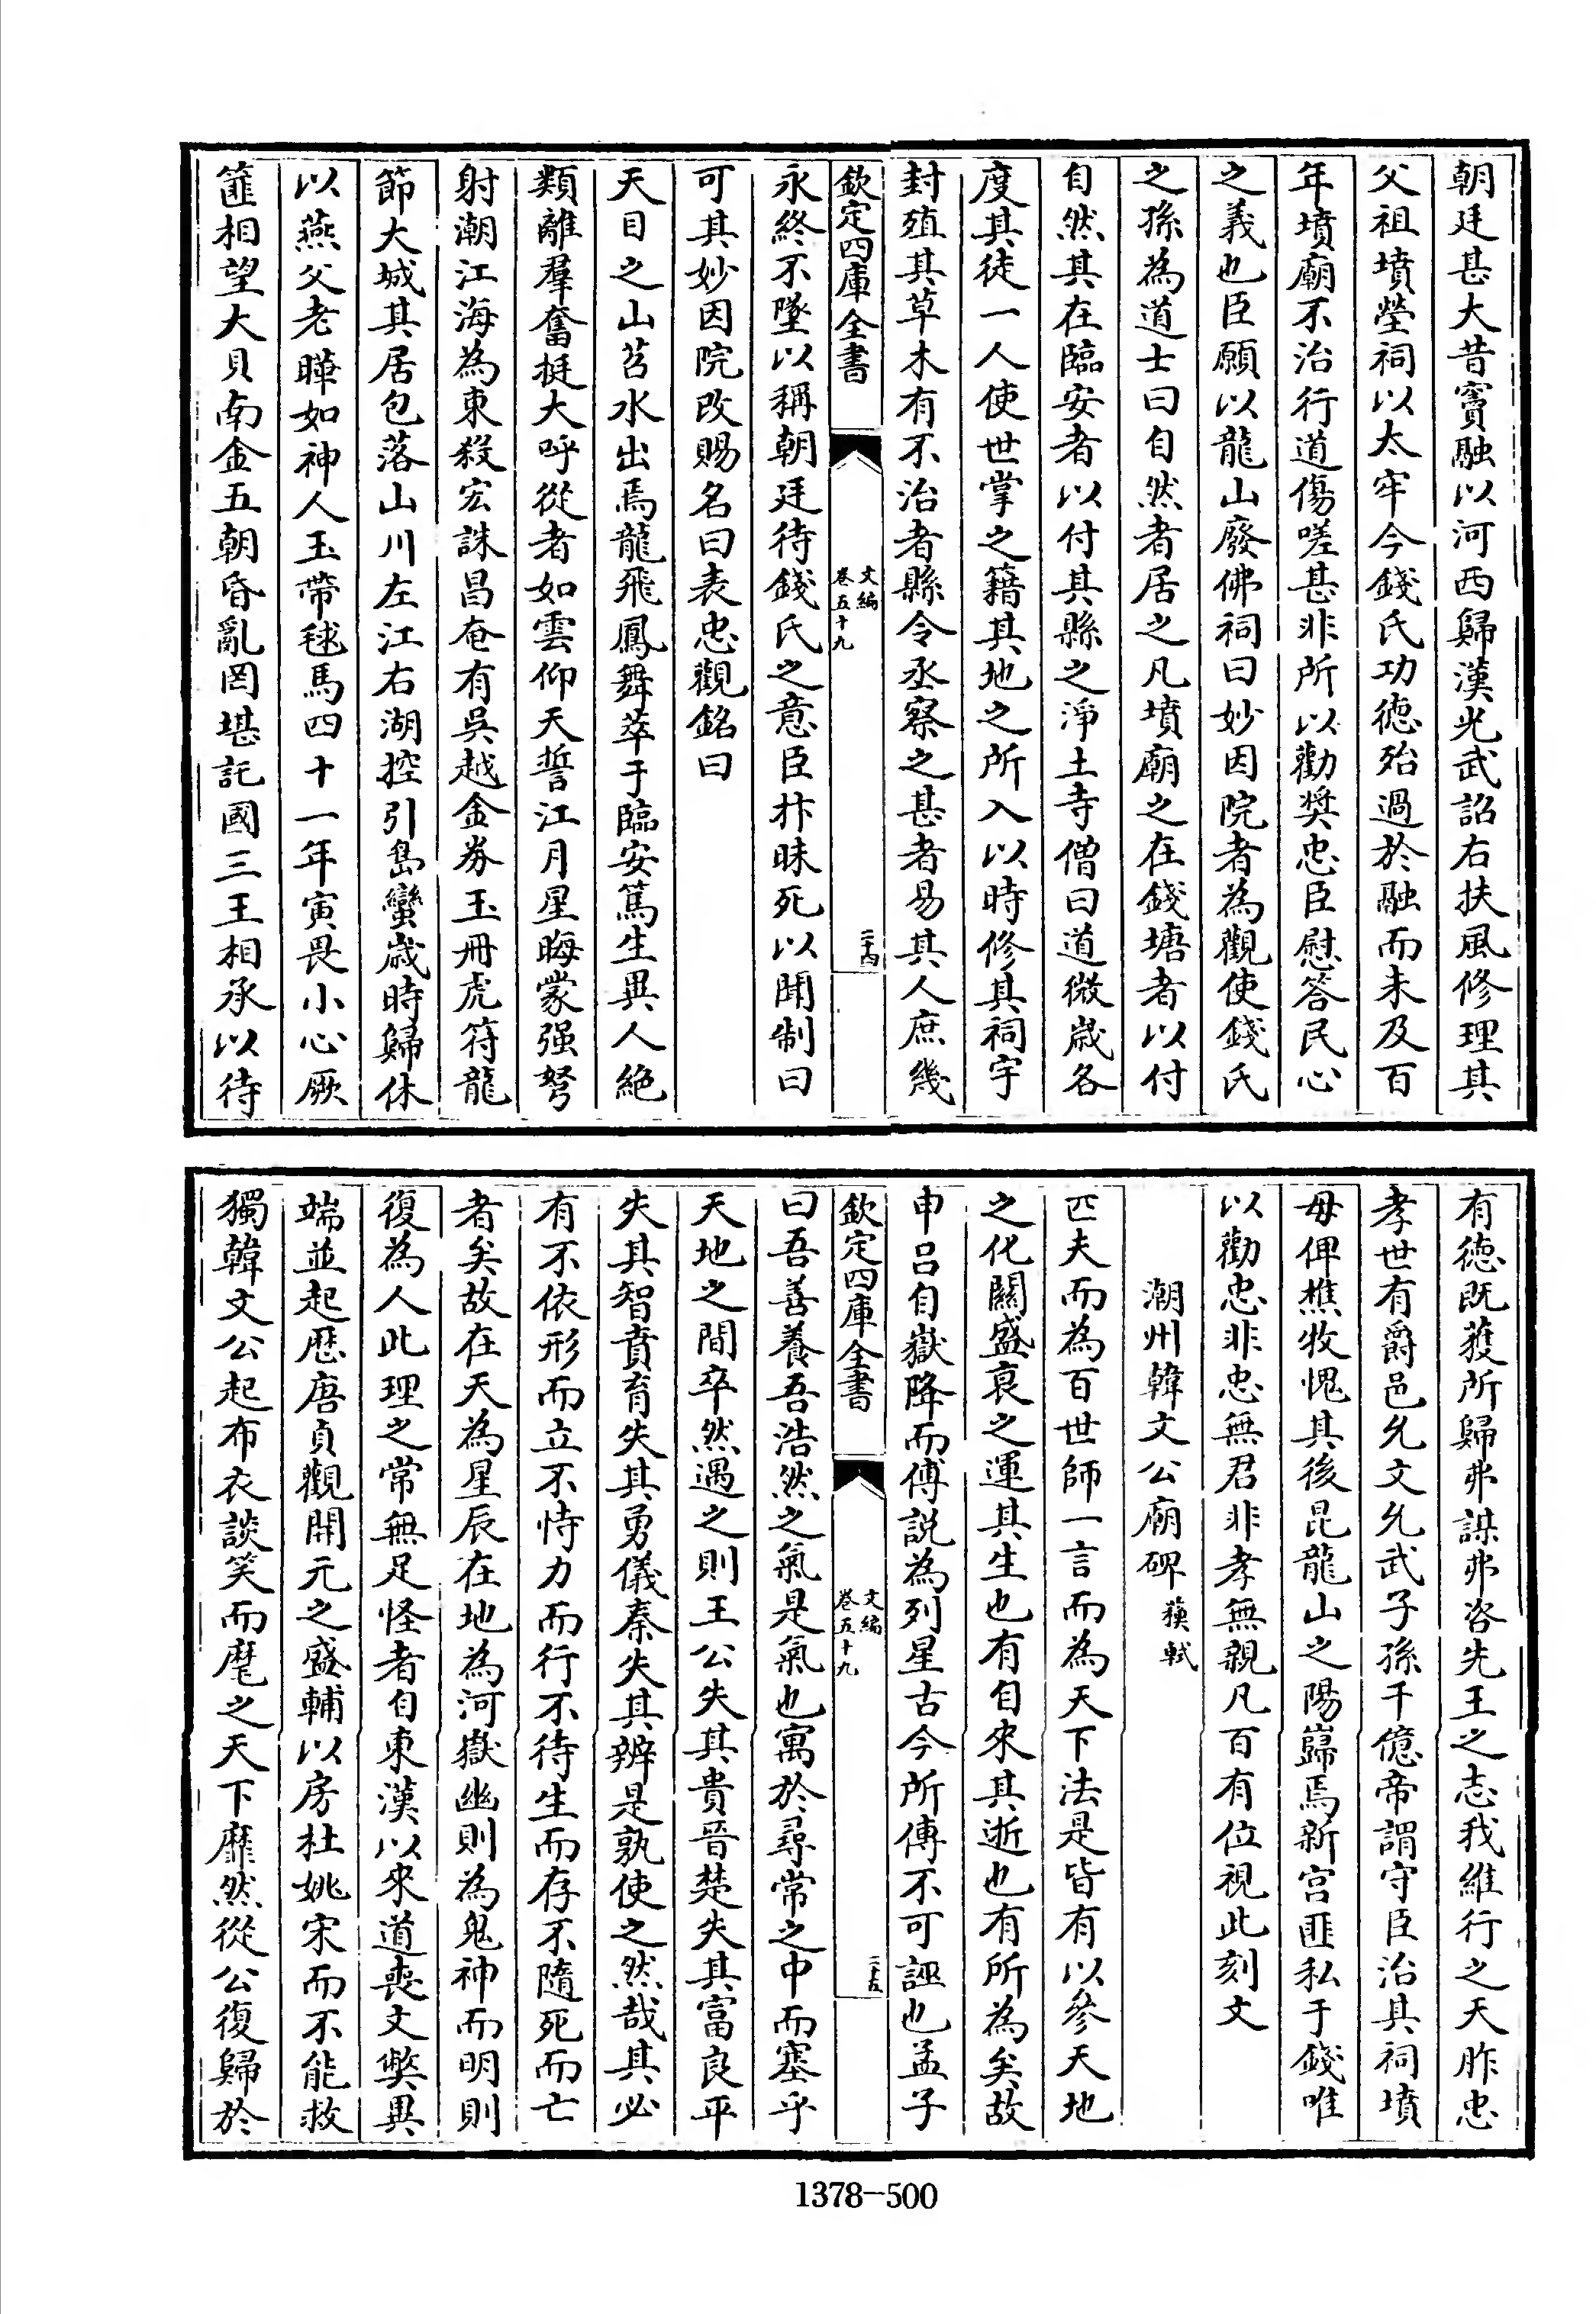 朝廷甚大昔竇融以河西歸漢光武詔右扶風修理其
父祖墳塋祠以太牢今錢氏功德殆過於融而未及百
年墳廟不治行道傷嗟甚非所以勸奬忠臣慰答民心
之義也臣願以龍山廢佛祠曰妙因院者為觀使錢氏
之孫為道士曰自然者居之凡墳廟之在錢塘者以付
自然其在臨安者以付其縣之淨土寺僧曰道微歲各
度其徒一人使世掌之籍其地之所入以時修其祠宇
封殖其草木有不治者縣令丞察之甚者易其人庶幾
欽定四庫全書
文編
卷五十九
二十四
永終不墜以稱朝廷待錢氏之意臣抃昧死以聞制曰
可其妙因院改賜名曰表忠觀銘曰
天目之山苕水出焉龍飛鳳舞萃于臨安篤生異人絶
類離羣奮挺大呼從者如雲仰天誓江月星晦蒙强弩
射潮江海為東殺宏誅昌奄有吳越金券玉冊虎符龍
節大城其居包落山川左江右湖控引島蠻歲時歸休
以燕父老曄如神人玉帶毬馬四十一年寅畏小心厥
篚相望大貝南金五朝昏亂罔堪託國三王相承以待
有德既獲所歸弗謀弗咨先王之志我維行之天胙忠
孝世有爵邑允文允武子孫千億帝謂守臣治其祠墳
毋俾樵牧愧其後昆龍山之陽巋焉新宫匪私于錢唯
以勸忠非忠無君非孝無親凡百有位視此刻文
潮州韓文公廟碑 蘇軾
匹夫而為百世師一言而為天下法是皆有以參天地
之化關盛衰之運其生也有自來其逝也有所為矣故
申吕自嶽降而傅説為列星古今所傳不可誣也孟子
欽定四庫全書
文編
卷五十九
二十五
曰吾善養吾浩然之氣是氣也寓於尋常之中而塞乎
天地之間卒然遇之則王公失其貴晉楚失其富良平
失其智賁育失其勇儀秦失其辨是孰使之然哉其必
有不依形而立不恃力而行不待生而存不隨死而亡
者矣故在天為星辰在地為河嶽幽則為鬼神而明則
復為人此理之常無足怪者自東漢以來道喪文弊異
端並起歴唐貞觀開元之盛輔以房杜姚宋而不能救
獨韓文公起布衣談笑而麾之天下靡然從公復歸於
1378-500